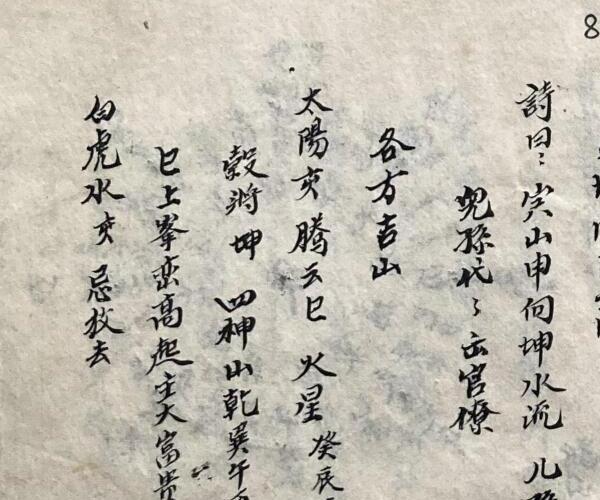 詩曰〻寅山申向坤水流 儿
兒孫代〻出官僚
各方吉山
太陽亥 腾云巳 火星 癸辰
穀将坤 四神山乾巽午
巳上峯峦高起主大富貴
白虎水亥 忌放去